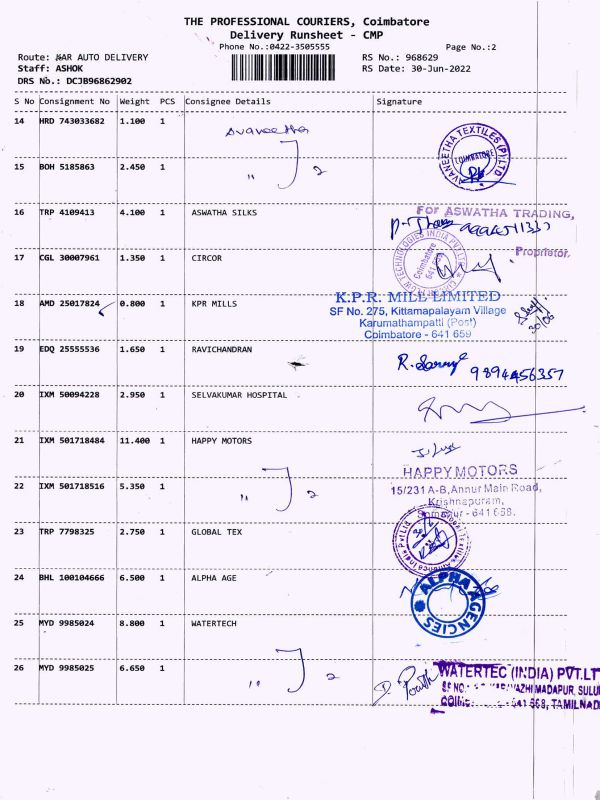 THE PROFESSIONAL COURIERS, Coimbatore
Delivery Runsheet - CMP
Phone No.:0422-3505555 Page No.:2
Route: KAR AUTO DELIVERY RS No.: 968629
Staff: ASHOK RS Date: 30-Jun-2022
DRS No.: DCJB96862902
S No Consignment No Weight PCS Consignee Details Signature
14 HRD 743033682 1.100 1 Avaneetha
AVANEETHA TEXTILES (P) LTD
COIMBATORE
15 BOH 5185863 2.450 1 " 2
16 TRP 4109413 4.100 1 ASWATHA SILKS
For ASWATHA TRADING,
Proprietor.
17 CGL 30007961 1.350 1 CIRCOR
FLOW TECHNOLOGIES INDIA PVT LTD
Coimbatore
641
18 AMD 25017824 0.800 1 KPR MILLS
K.P.R. MILL LIMITED
SF No. 275, Kittamapalayam Village
Karumathampatti (Post)
Coimbatore - 641 659
30/06
19 EDQ 25555536 1.650 1 RAVICHANDRAN
9894456357
20 IXM 50094228 2.950 1 SELVAKUMAR HOSPITAL
21 IXM 501718484 11.400 1 HAPPY MOTORS
HAPPY MOTORS
15/231 A-B, Annur Main Road,
Krishnapuram,
Somanur - 641 668.
22 IXM 501718516 5.350 1 " 2
23 TRP 7798325 2.750 1 GLOBAL TEX
24 BHL 100104666 6.500 1 ALPHA AGE
ALPHA AGENCIES
25 MYD 9985024 8.800 1 WATERTECH
26 MYD 9985025 6.650 1 " 2
WATERTEC (INDIA) PVT.LT
MADAPUR, SULU
641 668, TAMILNAD